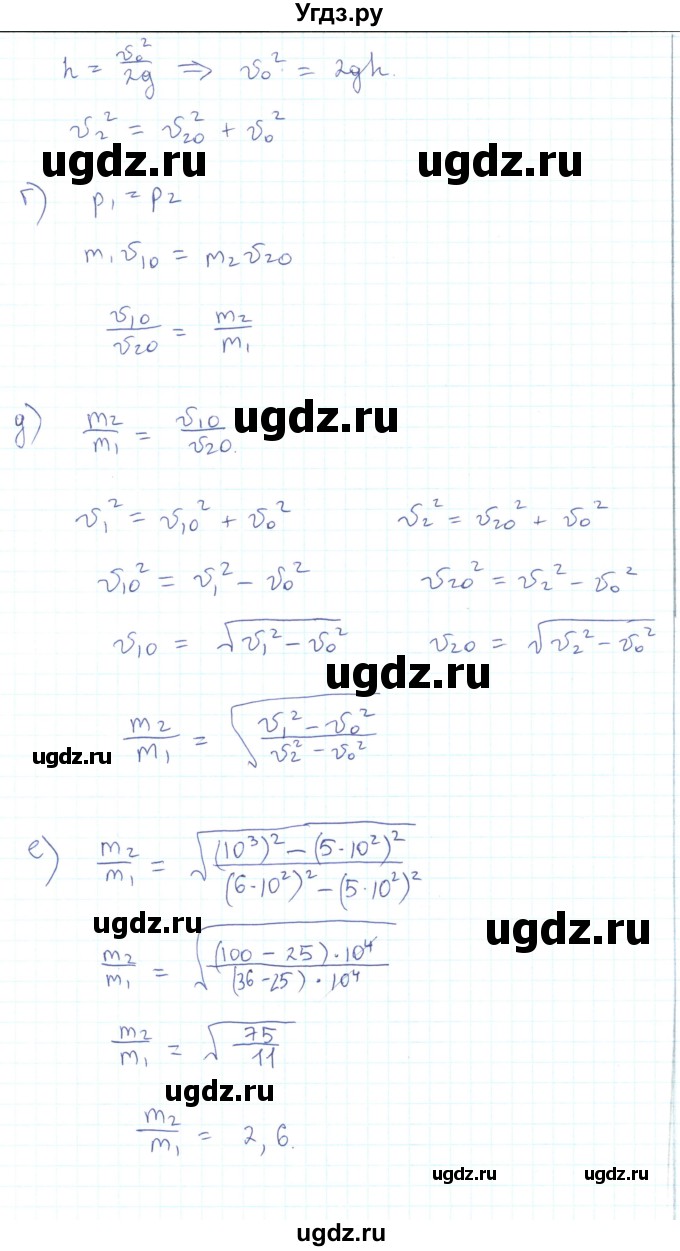 Угдз.ру
h = v₀²/2g ⇒ v₀² = 2gh.
v₂² = v₂₀² + v₀²
ugdz.ru ugdz.ru
г) p₁ = p₂
m₁v₁₀ = m₂v₂₀
v₁₀/v₂₀ = m₂/m₁
д) m₂/m₁ = v₁₀/v₂₀.
ugdz.ru
v₁² = v₁₀² + v₀² v₂² = v₂₀² + v₀²
v₁₀² = v₁² − v₀² v₂₀² = v₂² − v₀²
v₁₀ = √(v₁² − v₀²) v₂₀ = √(v₂² − v₀²)
ugdz.ru
m₂/m₁ = √((v₁² − v₀²)/(v₂² − v₀²))
ugdz.ru
е) m₂/m₁ = √(((10³)² − (5·10²)²)/((6·10²)² − (5·10²)²))
ugdz.ru ugdz.ru
m₂/m₁ = √(((100 − 25)·10⁴)/((36 − 25)·10⁴))
m₂/m₁ = √(75/11)
ugdz.ru
m₂/m₁ = 2,6.
ugdz.ru ugdz.ru
ugdz.ru